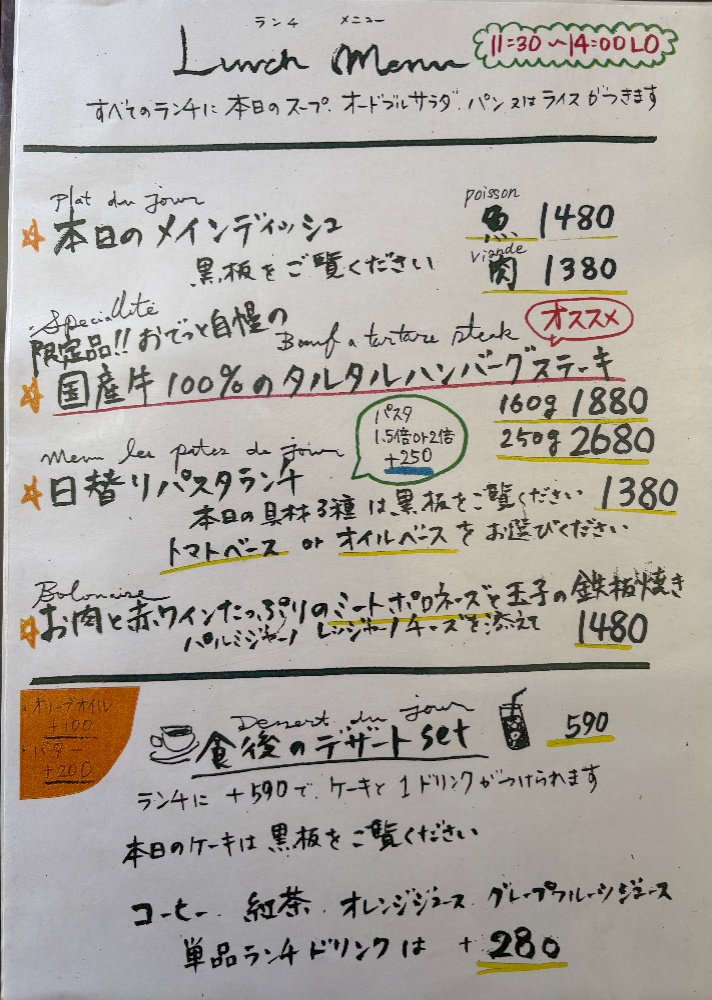 ランチ メニュー
Lunch Menu 11:30〜14:00 LO
すべてのランチに本日のスープ、オードブルサラダ、パン又はライスがつきます
Plat du jour
☆本日のメインディッシュ
poisson
魚 1480
黒板をご覧ください
viande
肉 1380
Specialité
限定品!!おでっと自慢の
Bœuf a tartare steak オススメ
☆国産牛100%のタルタルハンバーグステーキ
160g 1880
250g 2680
パスタ
1.5倍or2倍
+250
Menu les pates de jour
☆日替りパスタランチ
1380
本日の具材3種は黒板をご覧ください
トマトベース or オイルベースをお選びください
Bolonaise
☆お肉と赤ワインたっぷりのミートボロネーズと玉子の鉄板焼き
パルミジャーノ レッジャーノチーズを添えて 1480
・オリーブオイル
+100
・バター
+200
Dessert du jour
食後のデザートset 590
ランチに+590で、ケーキと1ドリンクがつけられます
本日のケーキは黒板をご覧ください
コーヒー、紅茶、オレンジジュース、グレープフルーツジュース
単品ランチドリンクは +280